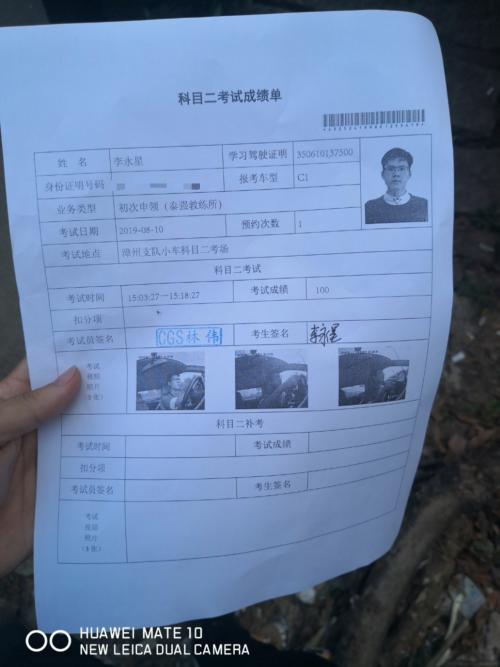 科目二考试成绩单
姓 名 李永星 学习驾驶证明 350610137500
身份证明号码 报考车型 C1
业务类型 初次申领（泰强教练所）
考试日期 2019-08-10 预约次数 1
考试地点 漳州支队小车科目二考场
科目二考试
考试时间 15:03:27—15:18:27 考试成绩 100
扣分项
考试员签名 CGS林伟 考生签名 李永星
考试
视频
照片
(3张)
科目二补考
考试时间 考试成绩
扣分项
考试员签名 考生签名
考试
视频
照片
(3张)
HUAWEI MATE 10
NEW LEICA DUAL CAMERA